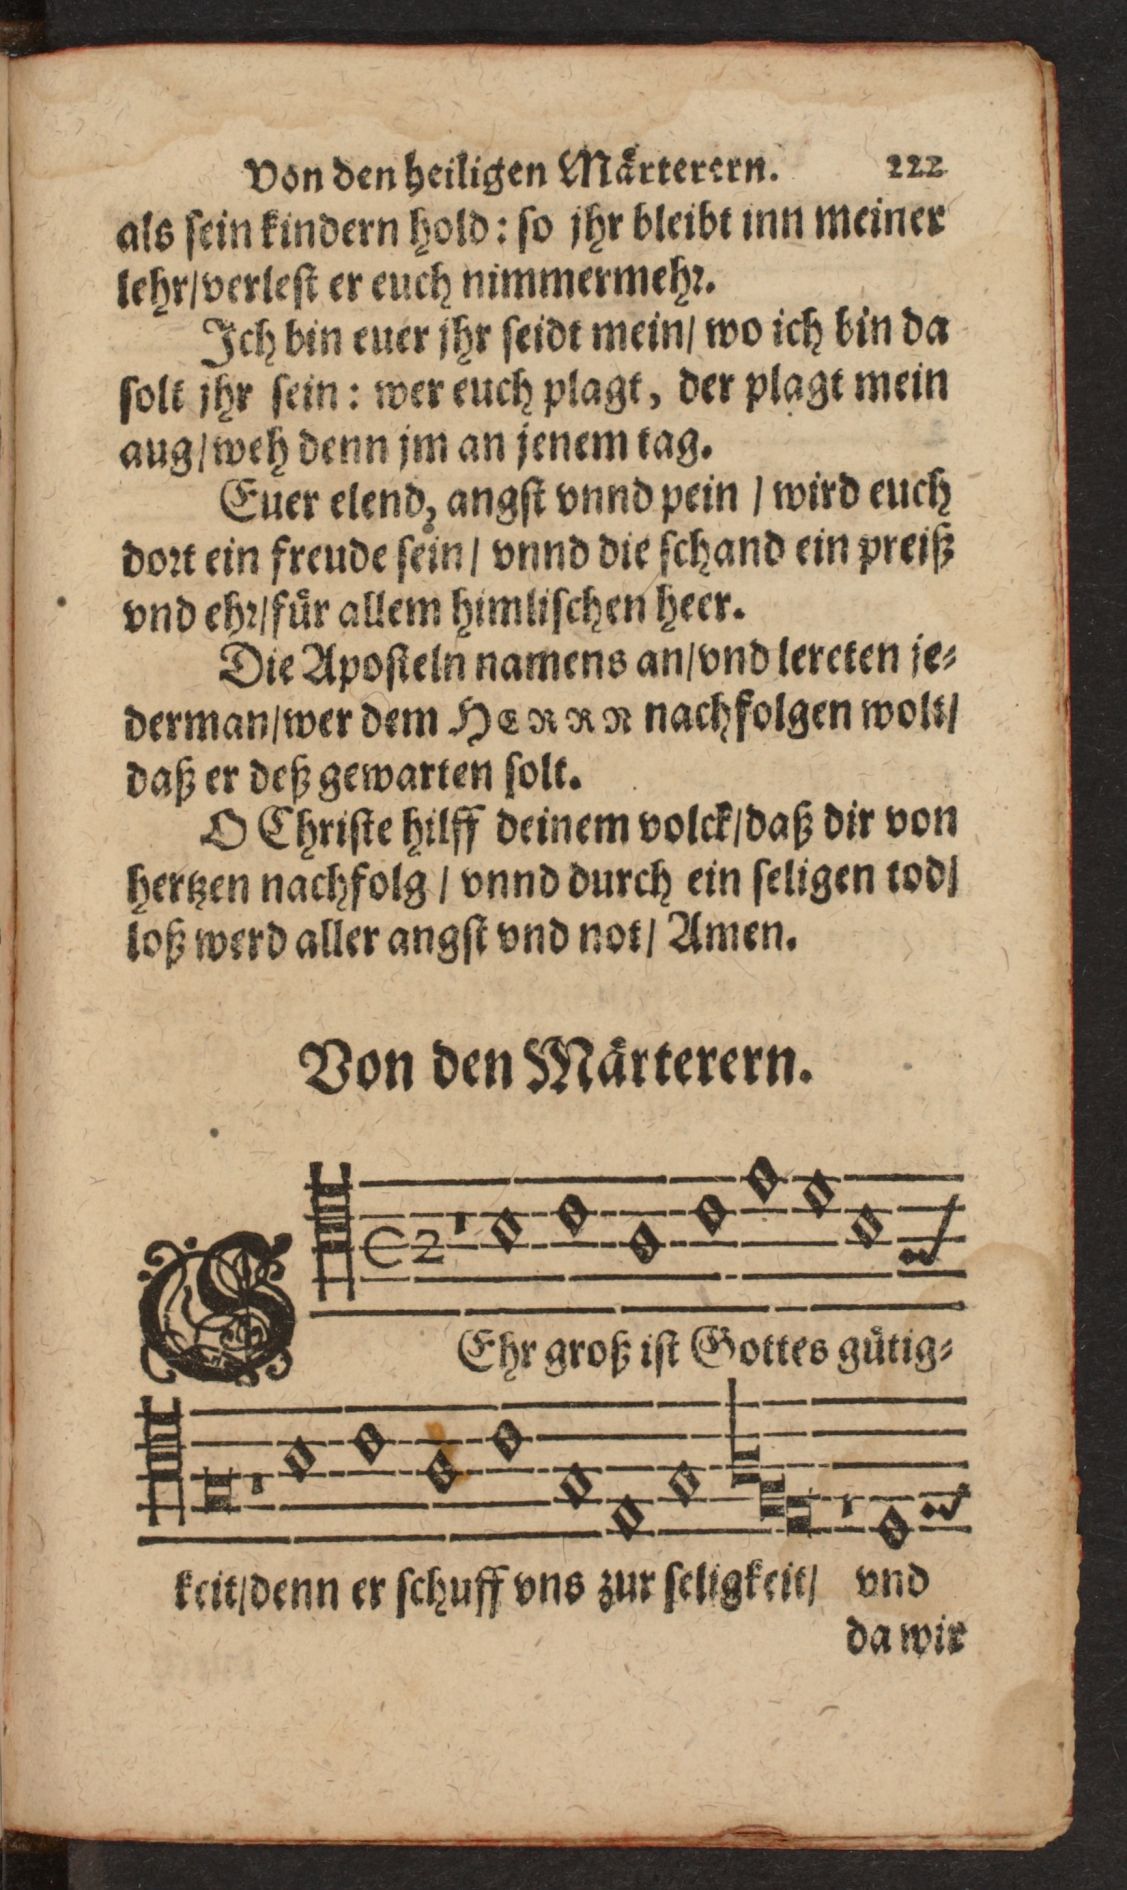 Von den heiligen Märterern. 222
als sein kindern hold: so jhr bleibt inn meiner
lehr/verlest er euch nimmermehr.
Ich bin euer jhr seidt mein/ wo ich bin da
solt jhr sein: wer euch plagt, der plagt mein
aug/weh denn jm an jenem tag.
Euer elend, angst vnnd pein / wird euch
dort ein freude sein/ vnnd die schand ein preiß
vnd ehr/für allem himlischen heer.
Die Aposteln namens an/vnd lereten je-
derman/wer dem HERRN nachfolgen wolt/
daß er deß gewarten solt.
O Christe hilff deinem volck/daß dir von
hertzen nachfolg / vnnd durch ein seligen tod/
loß werd aller angst vnd not/ Amen.
Von den Märterern.
C2
SEhr groß ist Gottes gütig-
keit/denn er schuff vns zur seligkeit/ vnd
da wir